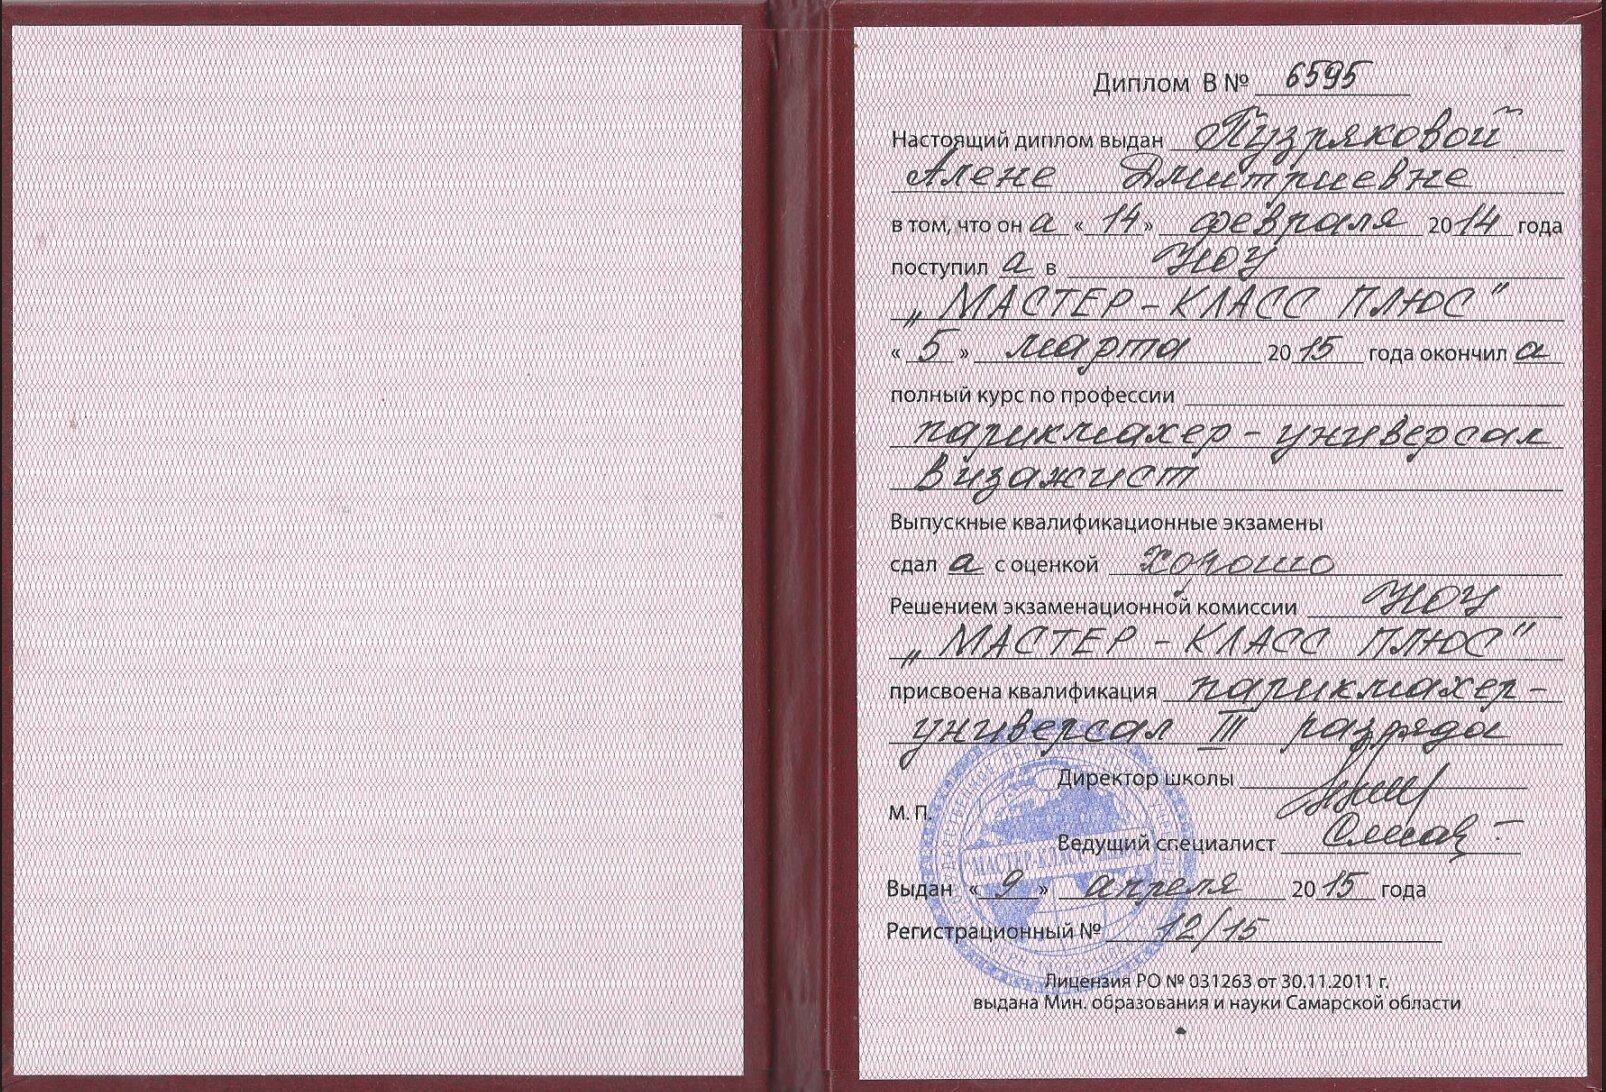 Диплом В № 6595
Настоящий диплом выдан Пузряковой
Алене Дмитриевне
в том, что он а « 14 » февраля 2014 года
поступил а в НОУ
„МАСТЕР-КЛАСС ПЛЮС"
« 5 » марта 2015 года окончил а
полный курс по профессии
парикмахер-универсал
визажист
Выпускные квалификационные экзамены
сдал а с оценкой хорошо
Решением экзаменационной комиссии НОУ
„МАСТЕР-КЛАСС ПЛЮС"
присвоена квалификация парикмахер-
универсал III разряда
Директор школы
М. П.
Ведущий специалист
МАСТЕР-КЛАСС
Выдан « 9 » апреля 2015 года
Регистрационный № 12/15
Лицензия РО № 031263 от 30.11.2011 г.
выдана Мин. образования и науки Самарской области